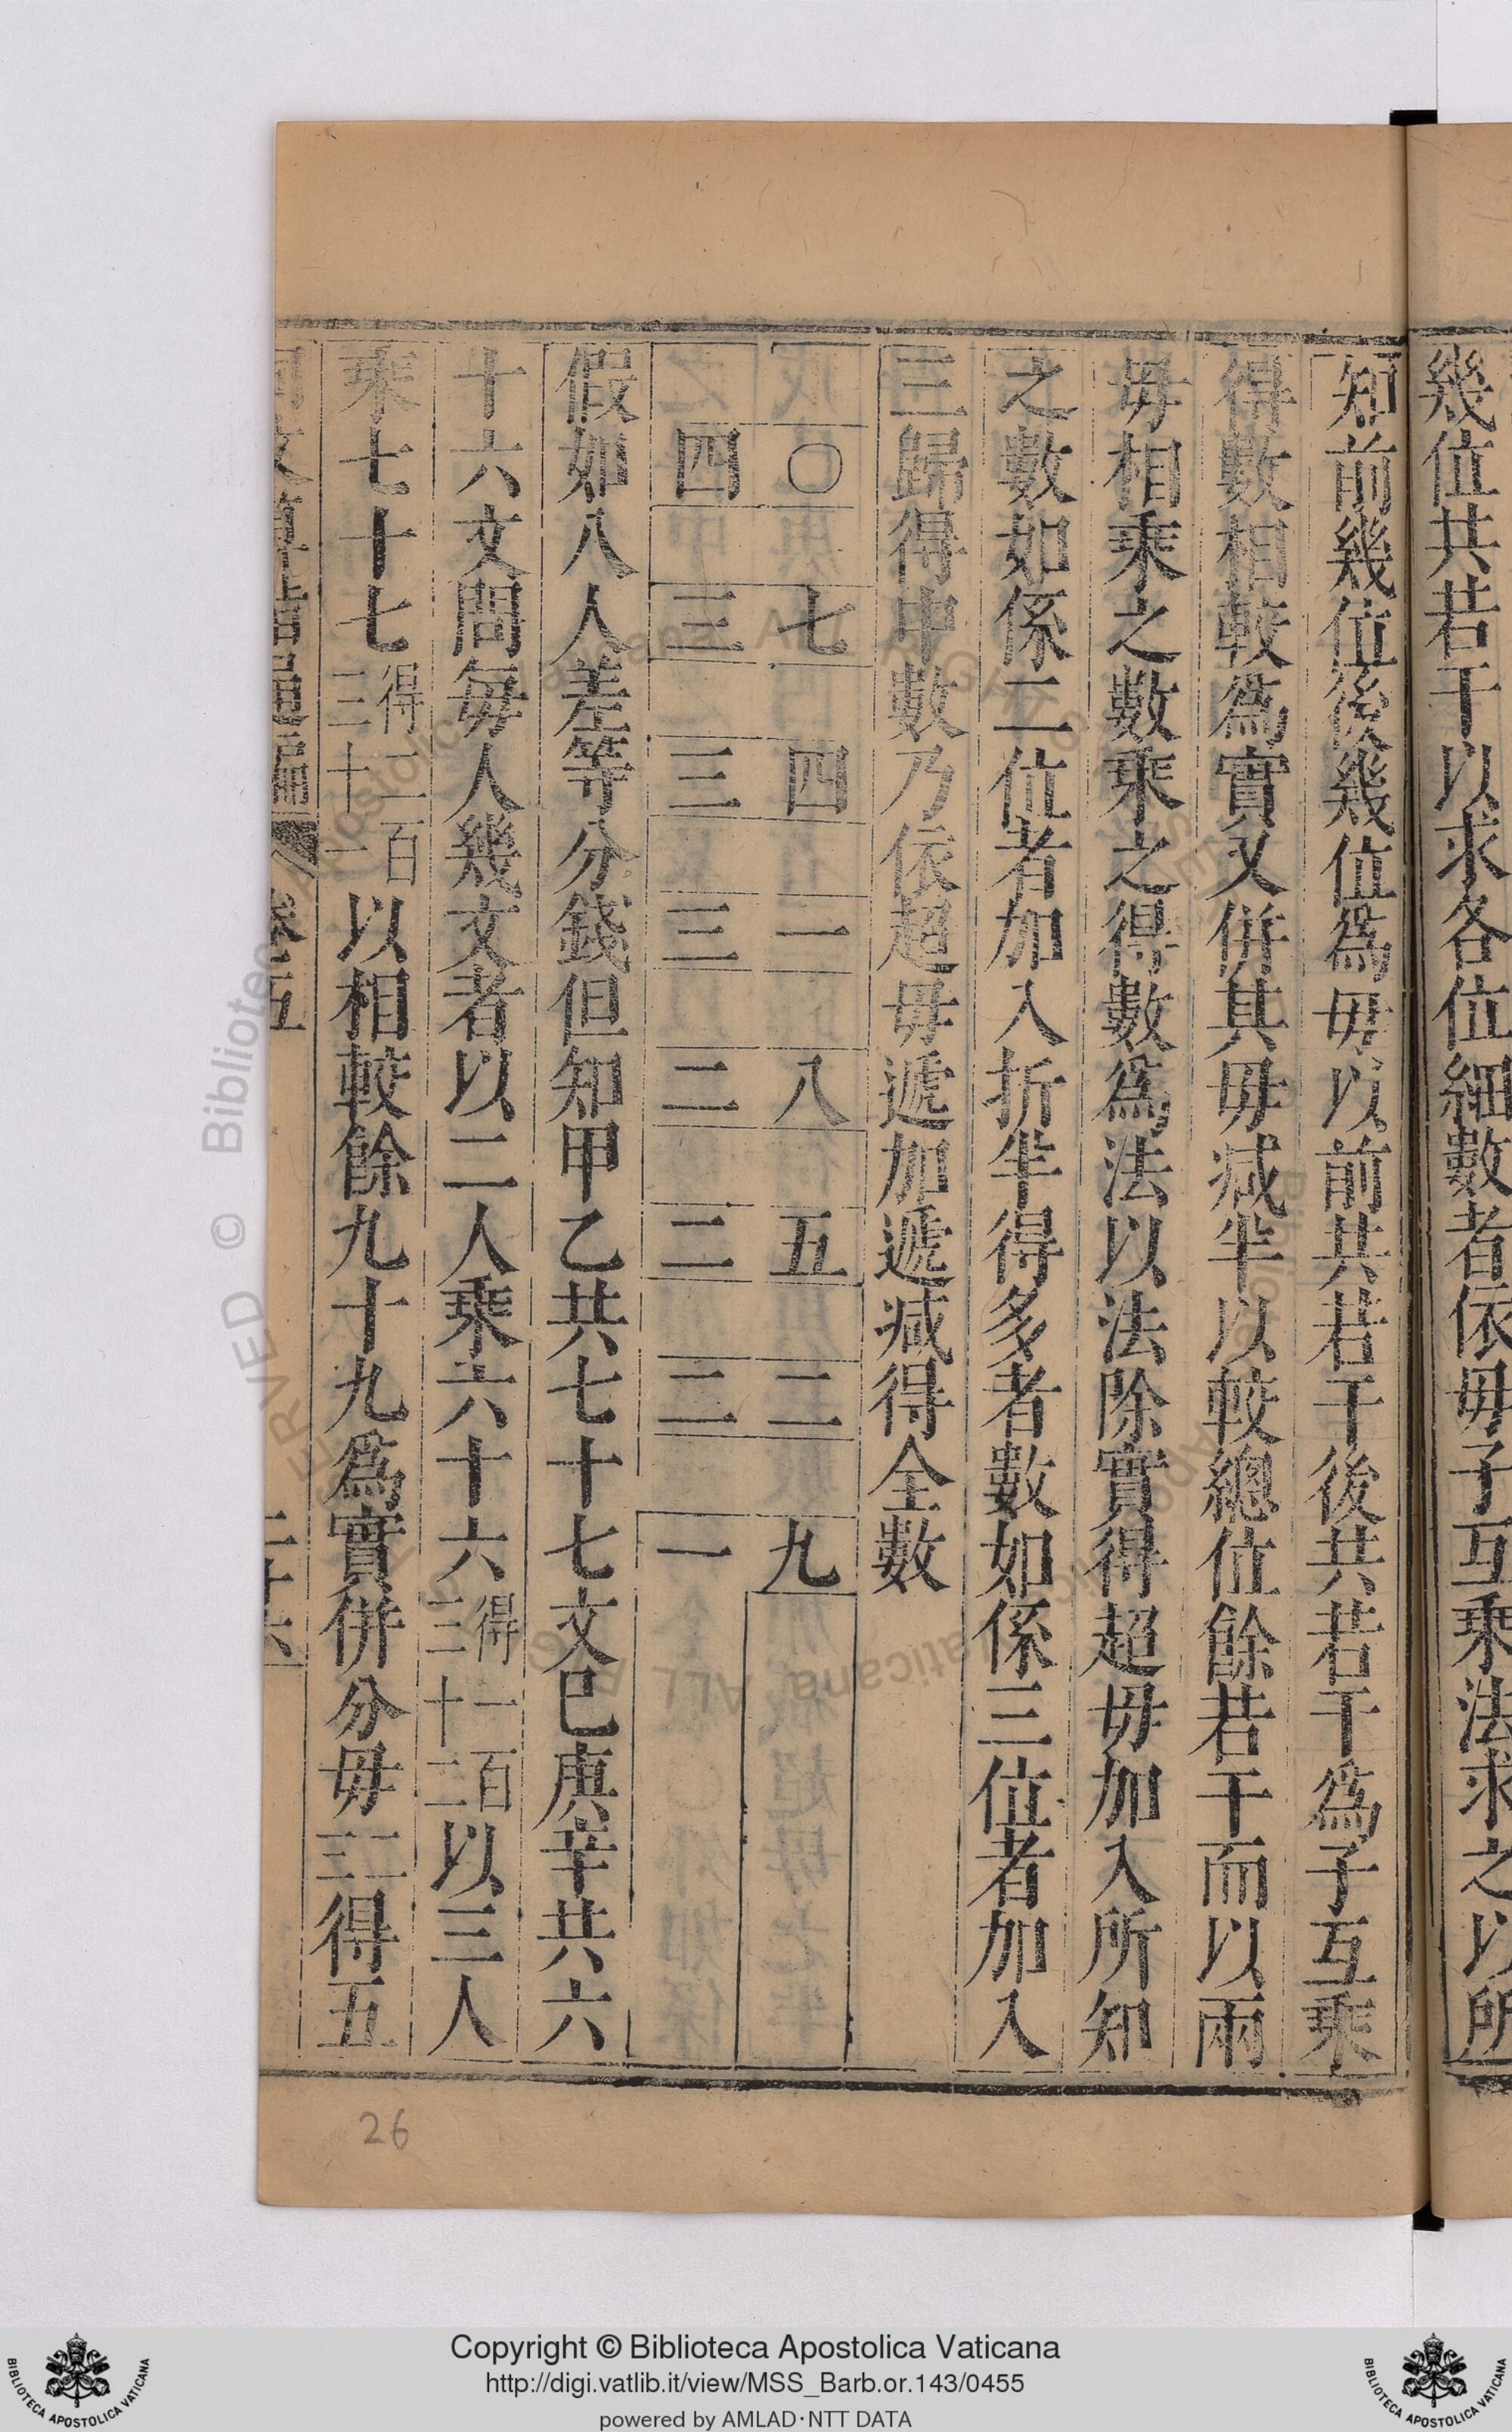 幾位共若干以求各位細數者依毋子互乘法求之以所
知前幾位後幾位爲毋以前共若干後共若干爲子互乘
得數相較爲實又併其毋减半以較總位餘若干而以兩
毋相乘之數乘之得數爲法以法除實得超毋加入所知
之數如係二位者加入折半得多者數如係三位者加入
三歸得中數乃依超毋遞加遞减得全數
〇 七 四 一 八 五 二 九
四 三 三 三 二 二 二 一
假如八人差等分錢但知甲乙共七十七文巳庚辛共六
十六文問每人幾文者以二人乘六十六得一百三十二以三人
乘七十七得二百三十一以相較餘九十九爲實併分毋二三得五
同文算指通編 卷五 二十六
26
Copyright © Biblioteca Apostolica Vaticana
http://digi.vatlib.it/view/MSS_Barb.or.143/0455
powered by AMLAD·NTT DATA
BIBLIOTECA APOSTOLICA VATICANA
BIBLIOTECA APOSTOLICA VATICANA